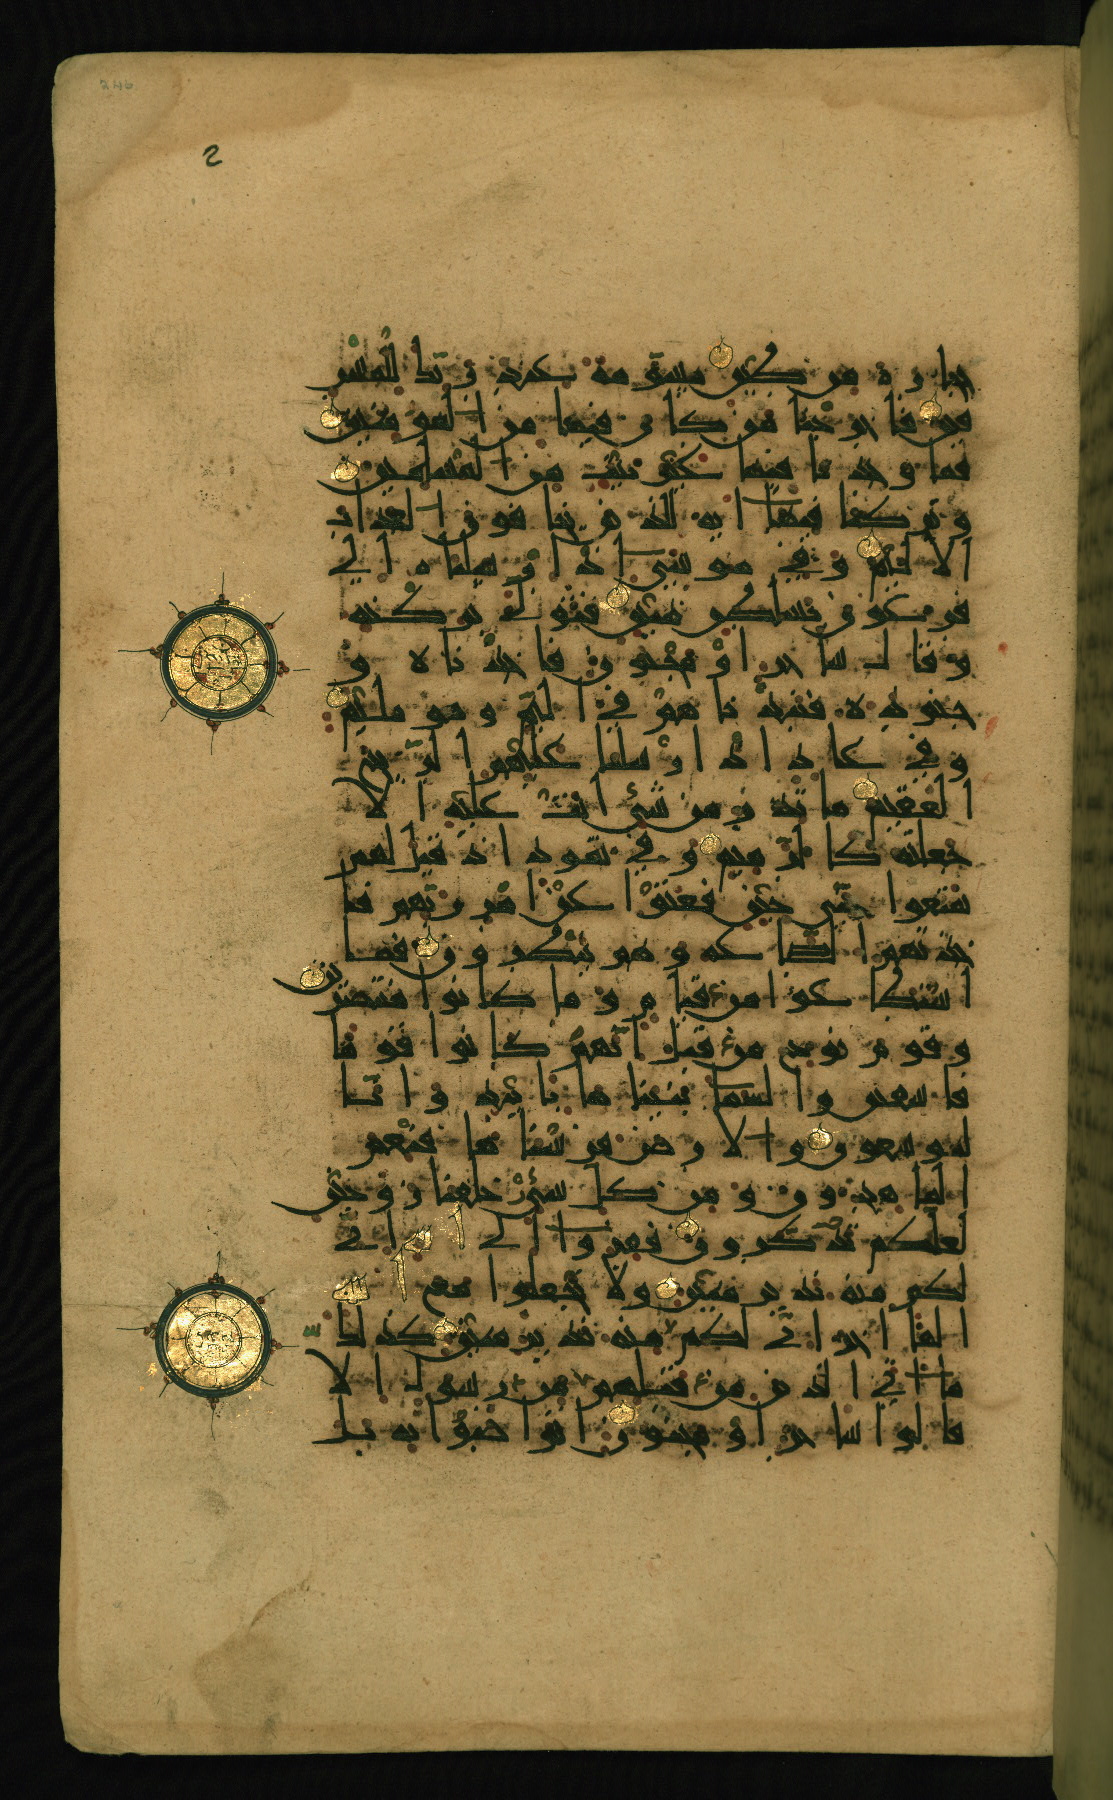 246
2
حجارة من طين مسومة عند ربك للمسر
فين فاخرجنا من كان فيها من المؤمنين
فما وجدنا فيها غير بيت من المسلمين
وتركنا فيها اية للذين يخافون العذاب
الاليم وفي موسى اذ ارسلناه الى
فرعون بسلطن مبين فتولى بركنه
وقال ساحر او مجنون فاخذناه و
جنوده فنبذناهم في اليم وهو مليم
وفي عاد اذ ارسلنا عليهم الريح
العقيم ما تذر من شئ اتت عليه الا
جعلته كالرميم وفي ثمود اذ قيل لهم
تمتعوا حتى حين فعتوا عن امر ربهم فا
خذتهم الصاعقة وهم ينظرون فما
استطاعوا من قيام وما كانوا منتصرين
وقوم نوح من قبل انهم كانوا قوما
فاسقين والسما بنيناها بايد وانا
لموسعون والارض فرشناها فنعم
الماهدون ومن كل شئ خلقنا زوجين
لعلكم تذكرون ففروا الى الله اني
لكم منه نذير مبين ولا تجعلوا مع الله
الها اخر اني لكم منه نذير مبين كذلك
ما اتى الذين من قبلهم من رسول الا
قالوا ساحر او مجنون اتواصوا به بل